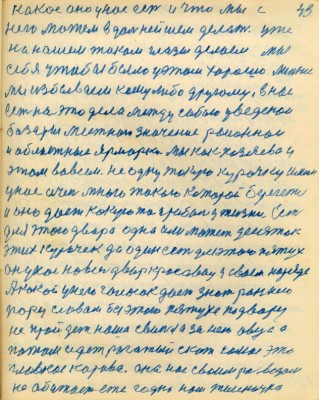 какое оно у нас ест и что мы с 43
него можем в дальнейшем делат. уже
на нашем таком глазу делаем мы
себя чтобы было у этом хорошо
мы избываем кому либо другому, в нас
ест на это дела между собою уведеной
базары местном значение районном
и областные ярмарки мы как хозяева у
этом во всем. не одну такую курочку имеем
у нас их много такого которой бережем
и оно дает какую то прибыл у жизни. Ест
для этого двора одна или может десяток
этих курочек да один ест для этого петух
он у нас на весь двор красавец у своем наряде
Такой у него голосок дает знат раннею
пору словам без этого петуха по двору
не пройдет наша свиня а за нею овца а
потом идет рогатый скот самое это
главное корова. она нас своим
не обижает сте годно нам теленочка